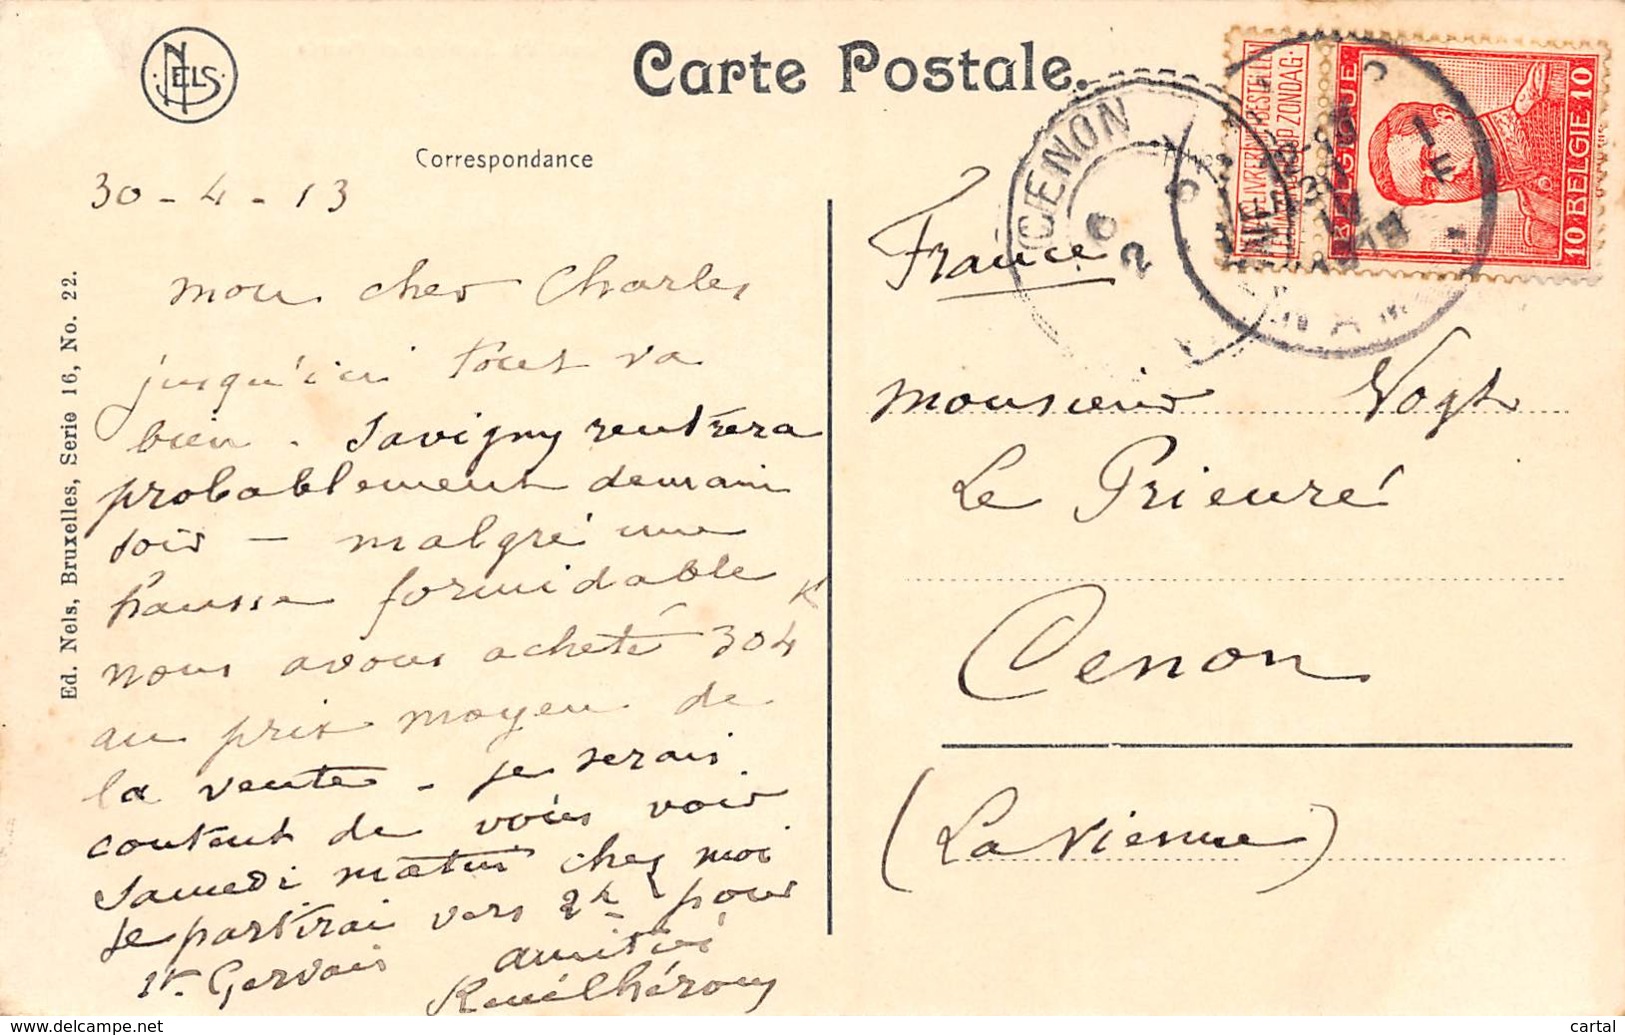 NELS
Carte Postale.
Correspondance
30-4-13
mon cher Charles
jusqu'ici tout va
bien. Savigny rentrera
probablement demain
soir - malgré une
hausse formidable
nous avons acheté 304 K
au prix moyen de
la vente - je serais
content de vous voir
Samedi matin chez moi
je partirai vers 2h pour
St. Gervais amitiés
Ed. Nels, Bruxelles, Serie 16, No. 22.
CENON
BELGIQUE 10
10 BELGIË 10
France
Monsieur Vogt
Le Prieuré
Cenon
(La Vienne)
cartal